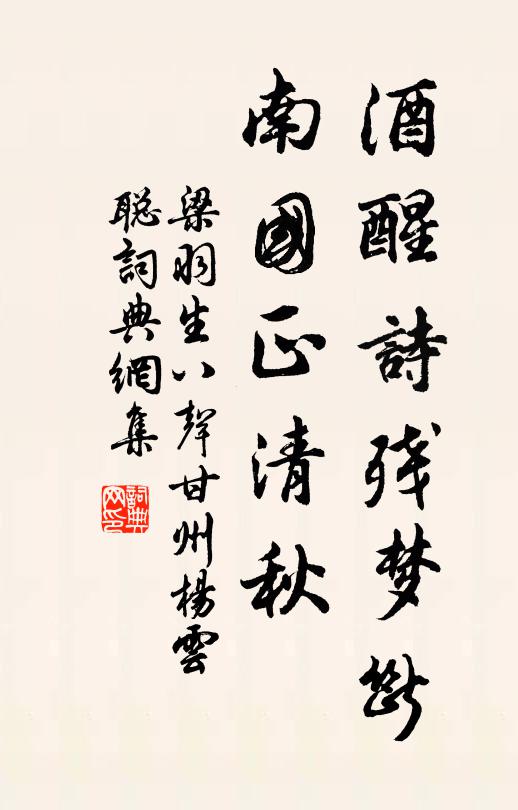 酒醒詩残梦斷
南國正清秋
梁羽生八聲甘州楊雲
聪詞典網集
詞典网印